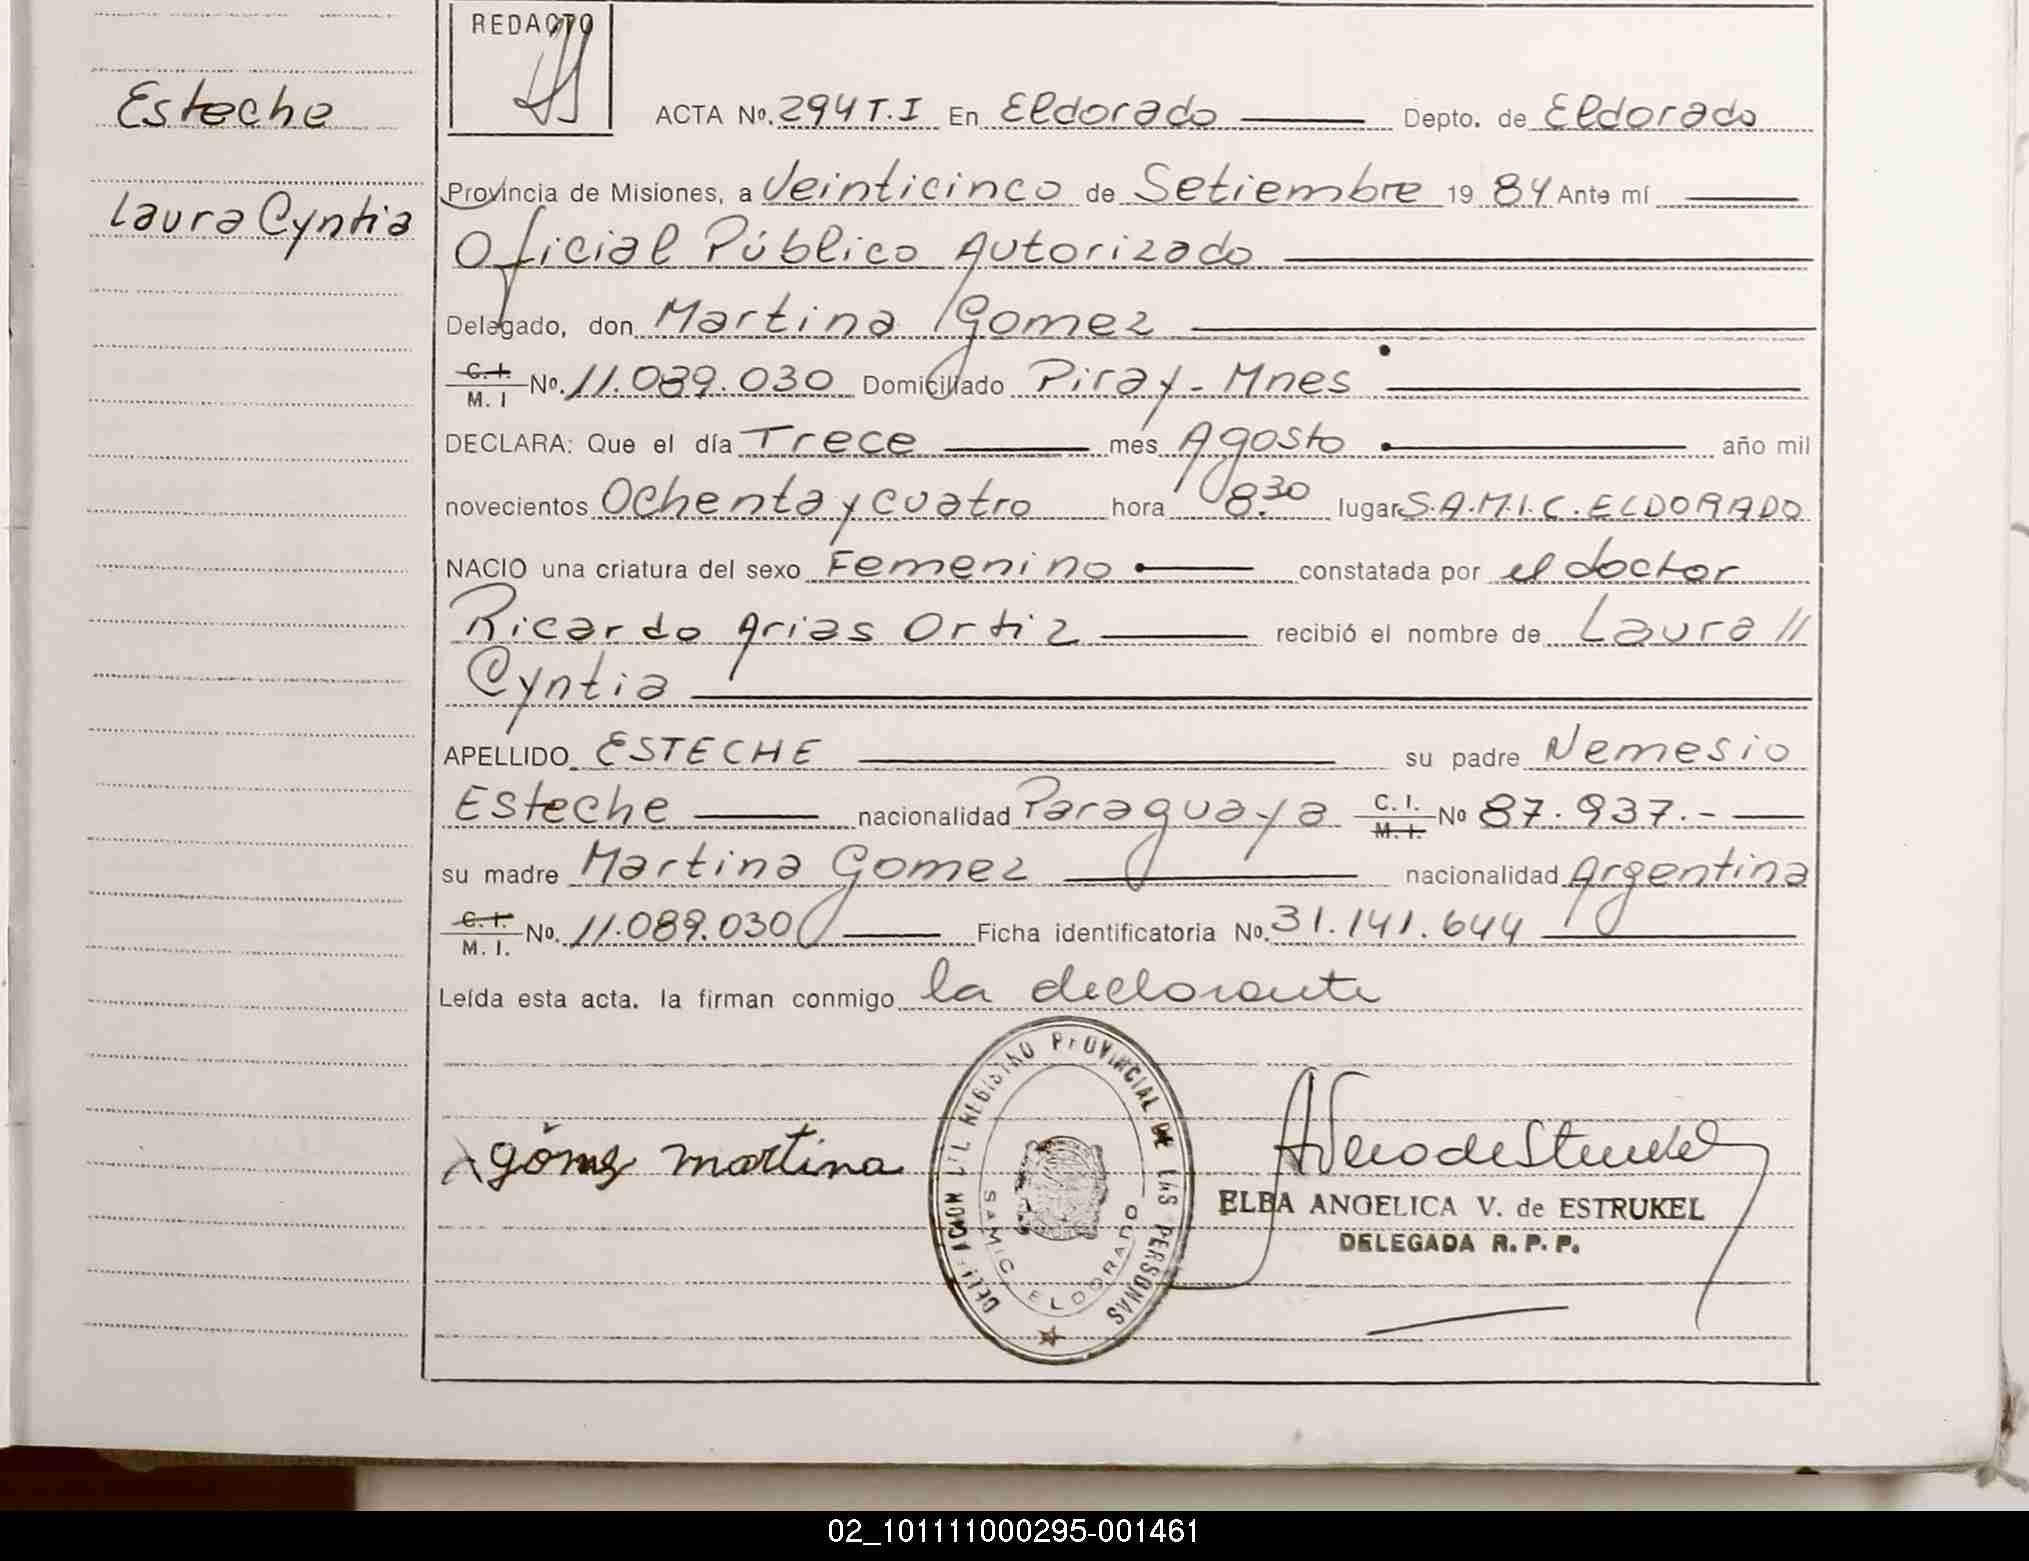 Esteche
Laura Cyntia
REDACTO
ACTA Nº. 294 T.I En Eldorado Depto. de Eldorado
Provincia de Misiones, a Veinticinco de Setiembre 19 84 Ante mí
Oficial Público Autorizado
Delegado, don Martina Gomez
C. I. / M. I Nº. 11.089.030 Domiciliado Piray - Mnes
DECLARA: Que el día Trece mes Agosto año mil
novecientos Ochenta y cuatro hora 8.30 lugar S.A.M.I.C. ELDORADO
NACIO una criatura del sexo Femenino constatada por el doctor
Ricardo Arias Ortiz recibió el nombre de Laura //
Cyntia
APELLIDO ESTECHE su padre Nemesio
Esteche nacionalidad Paraguaya C. I. / M. I. Nº 87.937.-
su madre Martina Gomez nacionalidad Argentina
C. I. / M. I. Nº. 11.089.030 Ficha identificatoria Nº. 31.141.644
Leída esta acta. la firman conmigo la declarante
gómez martina
DELEGACION DEL REGISTRO PROVINCIAL DE LAS PERSONAS
SAMIC. ELDORADO
ELBA ANGELICA V. de ESTRUKEL
DELEGADA R. P. P.
02_101111000295-001461